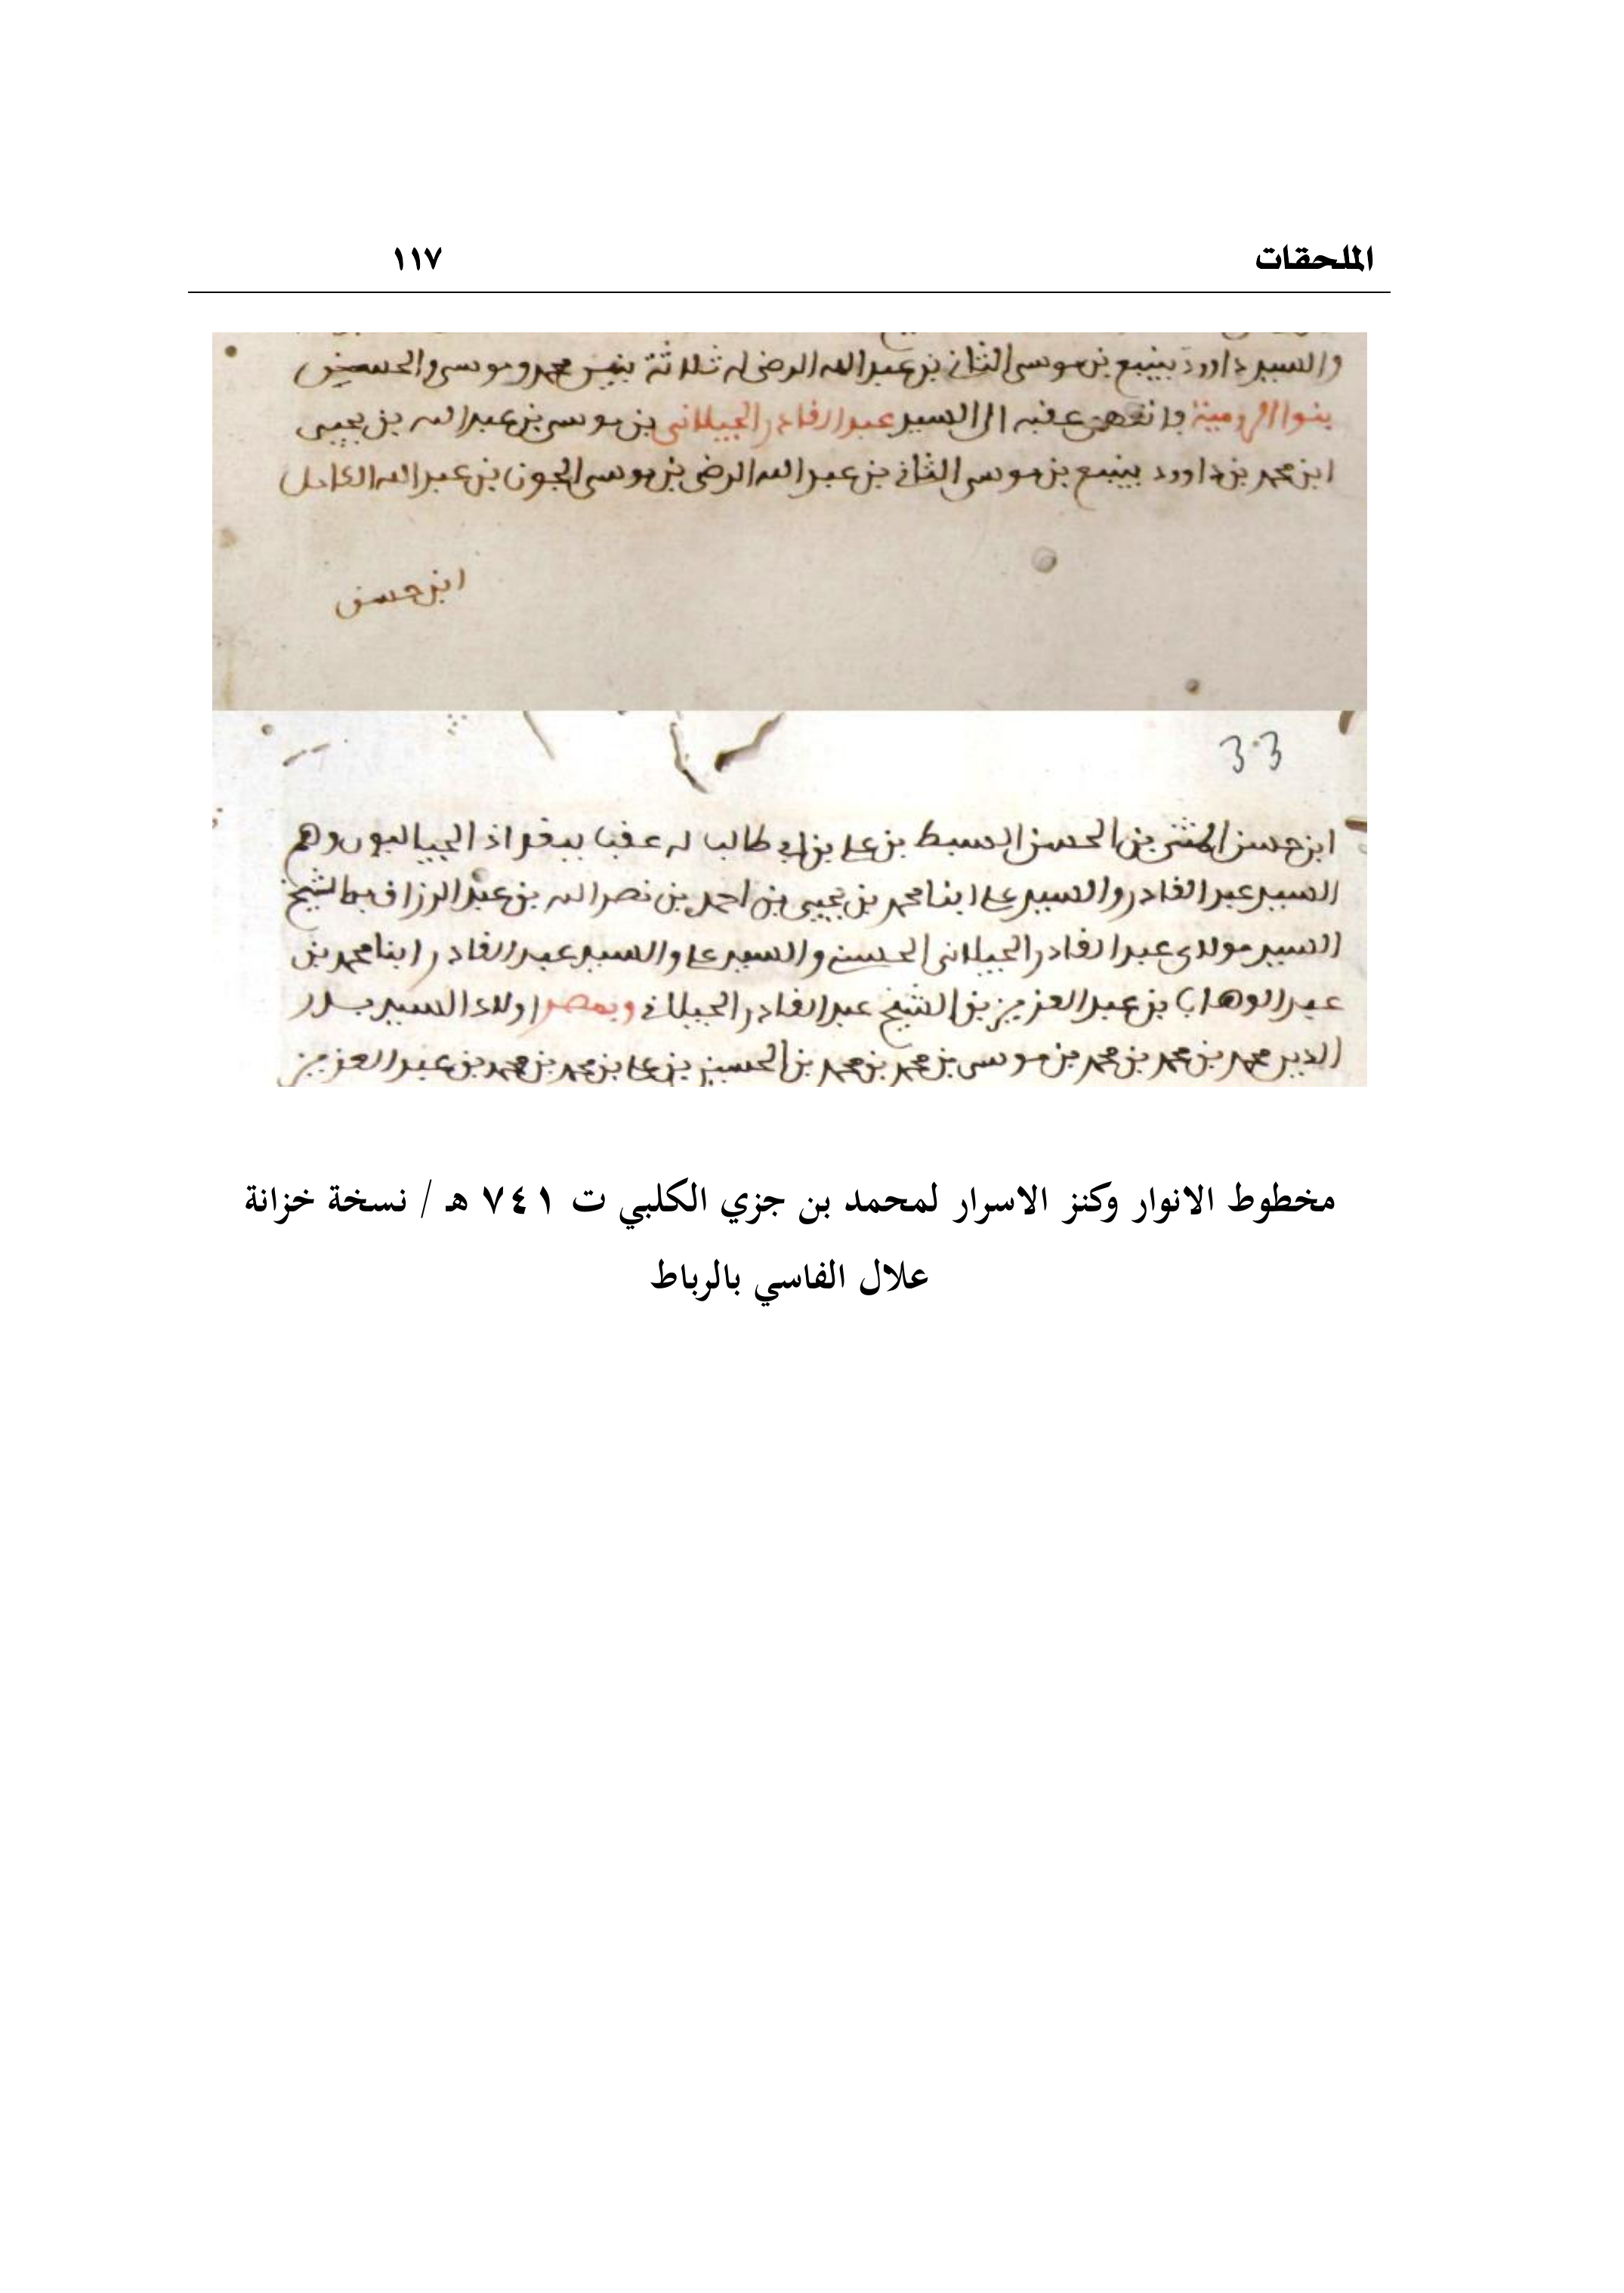 الملحقات ١١٧
والسيد داوود بينبع بن موسى الثاني بن عبد الله الرضى له ثلاثة بنين محمد وموسى والحسن
بنوا الرومية وانتهى عقبه الى السيد عبد القادر الجيلانى بن موسى بن عبد الله بن يحيى
ابن محمد بن داوود بينبع بن موسى الثاني بن عبد الله الرضى بن موسى الجون بن عبد الله الكامل
ابن حسن
33
ابن حسن المثنى بن الحسن السبط بن علي بن ابي طالب له عقب ببغداذ الجياليون وهم
السيد عبد القادر والسيد علي ابنا محمد بن يحيى بن احمد بن نصر الله بن عبد الرزاق بن الشيخ
السيد مولاي عبد القادر الجيلانى الحسني والسيد علي والسيد عبد القادر ابنا محمد بن
عبد الوهاب بن عبد العزيز بن الشيخ عبد القادر الجيلاني وبمصر اولاد السيد بدر
الدين محمد بن محمد بن محمد بن موسى بن محمد بن محمد بن الحسين بن علي بن محمد بن محمد بن عبد العزيز
مخطوط الانوار وكنز الاسرار لمحمد بن جزي الكلبي ت ٧٤١ هـ / نسخة خزانة
علال الفاسي بالرباط